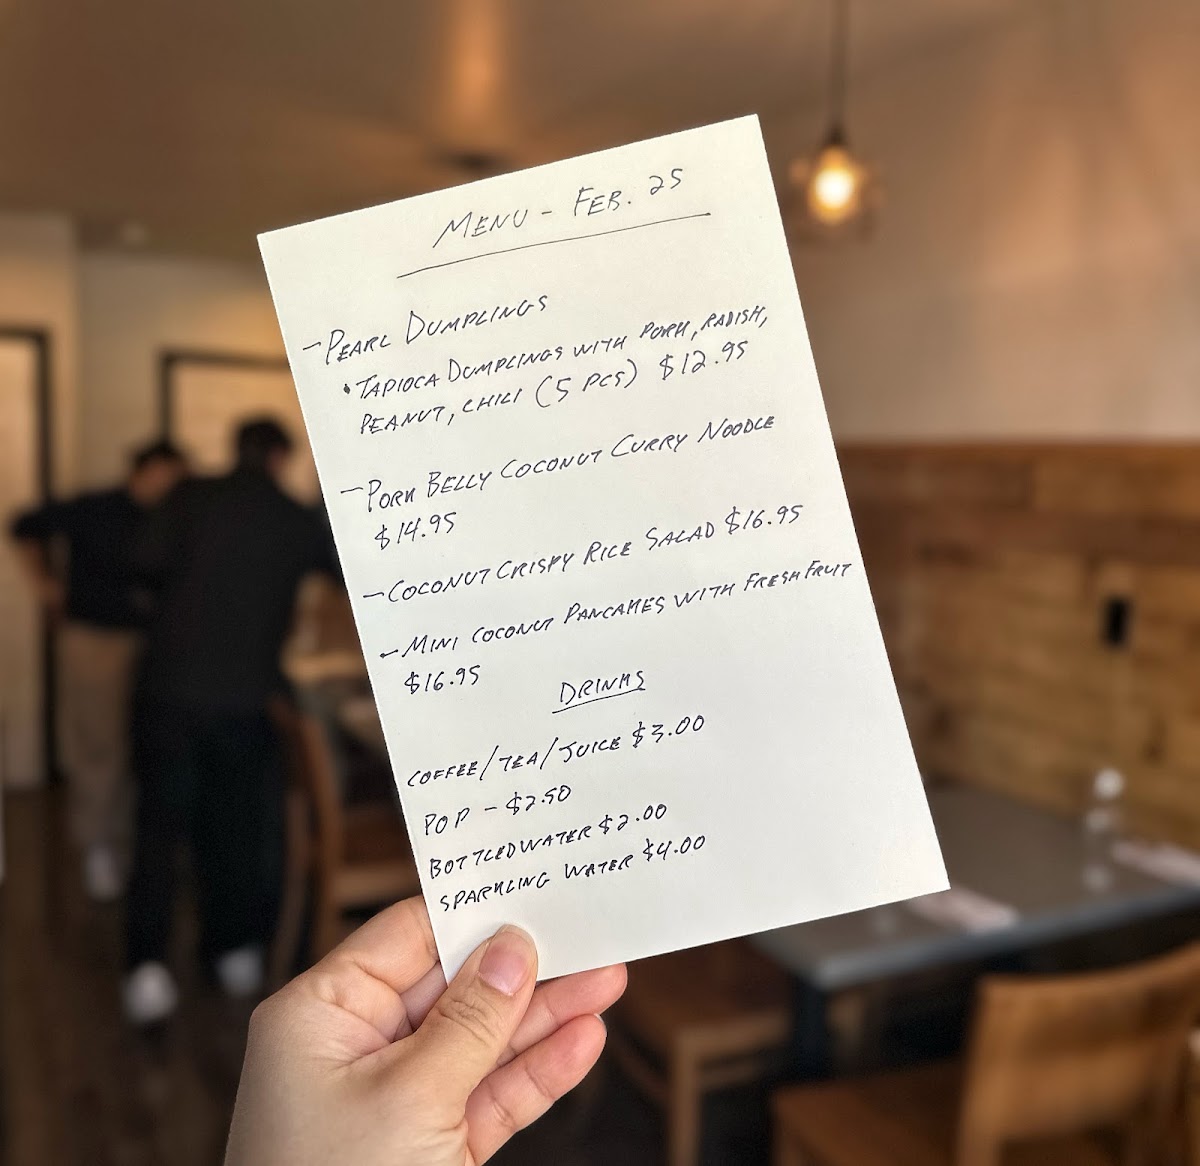 MENU - FEB. 25
- PEARL DUMPLINGS
• TAPIOCA DUMPLINGS WITH PORK, RADISH,
PEANUT, CHILI (5 PCS) $12.95
- PORK BELLY COCONUT CURRY NOODLE
$14.95
- COCONUT CRISPY RICE SALAD $16.95
- MINI COCONUT PANCAKES WITH FRESH FRUIT
$16.95
DRINKS
COFFEE/TEA/JUICE $3.00
POP - $2.50
BOTTLED WATER $2.00
SPARKLING WATER $4.00